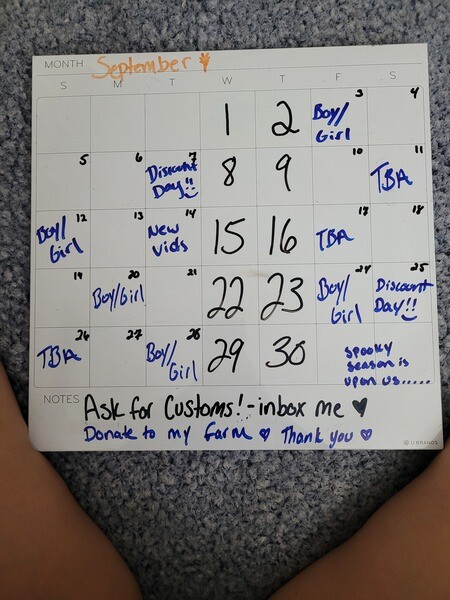 MONTH September
S M T W T F S
1 2 3 4
Boy/
Girl
5 6 7 8 9 10 11
Discount
Day!!
TBA
12 13 14 15 16 17 18
Boy/
Girl
New
vids
TBA
19 20 21 22 23 24 25
Boy/Girl
Boy/
Girl
Discount
Day!!
26 27 28 29 30
TBA
Boy/
Girl
spooky
season is
upon us.....
NOTES
Ask for Customs! - inbox me ♥
Donate to my farm ♥ Thank you ♥
© U BRANDS